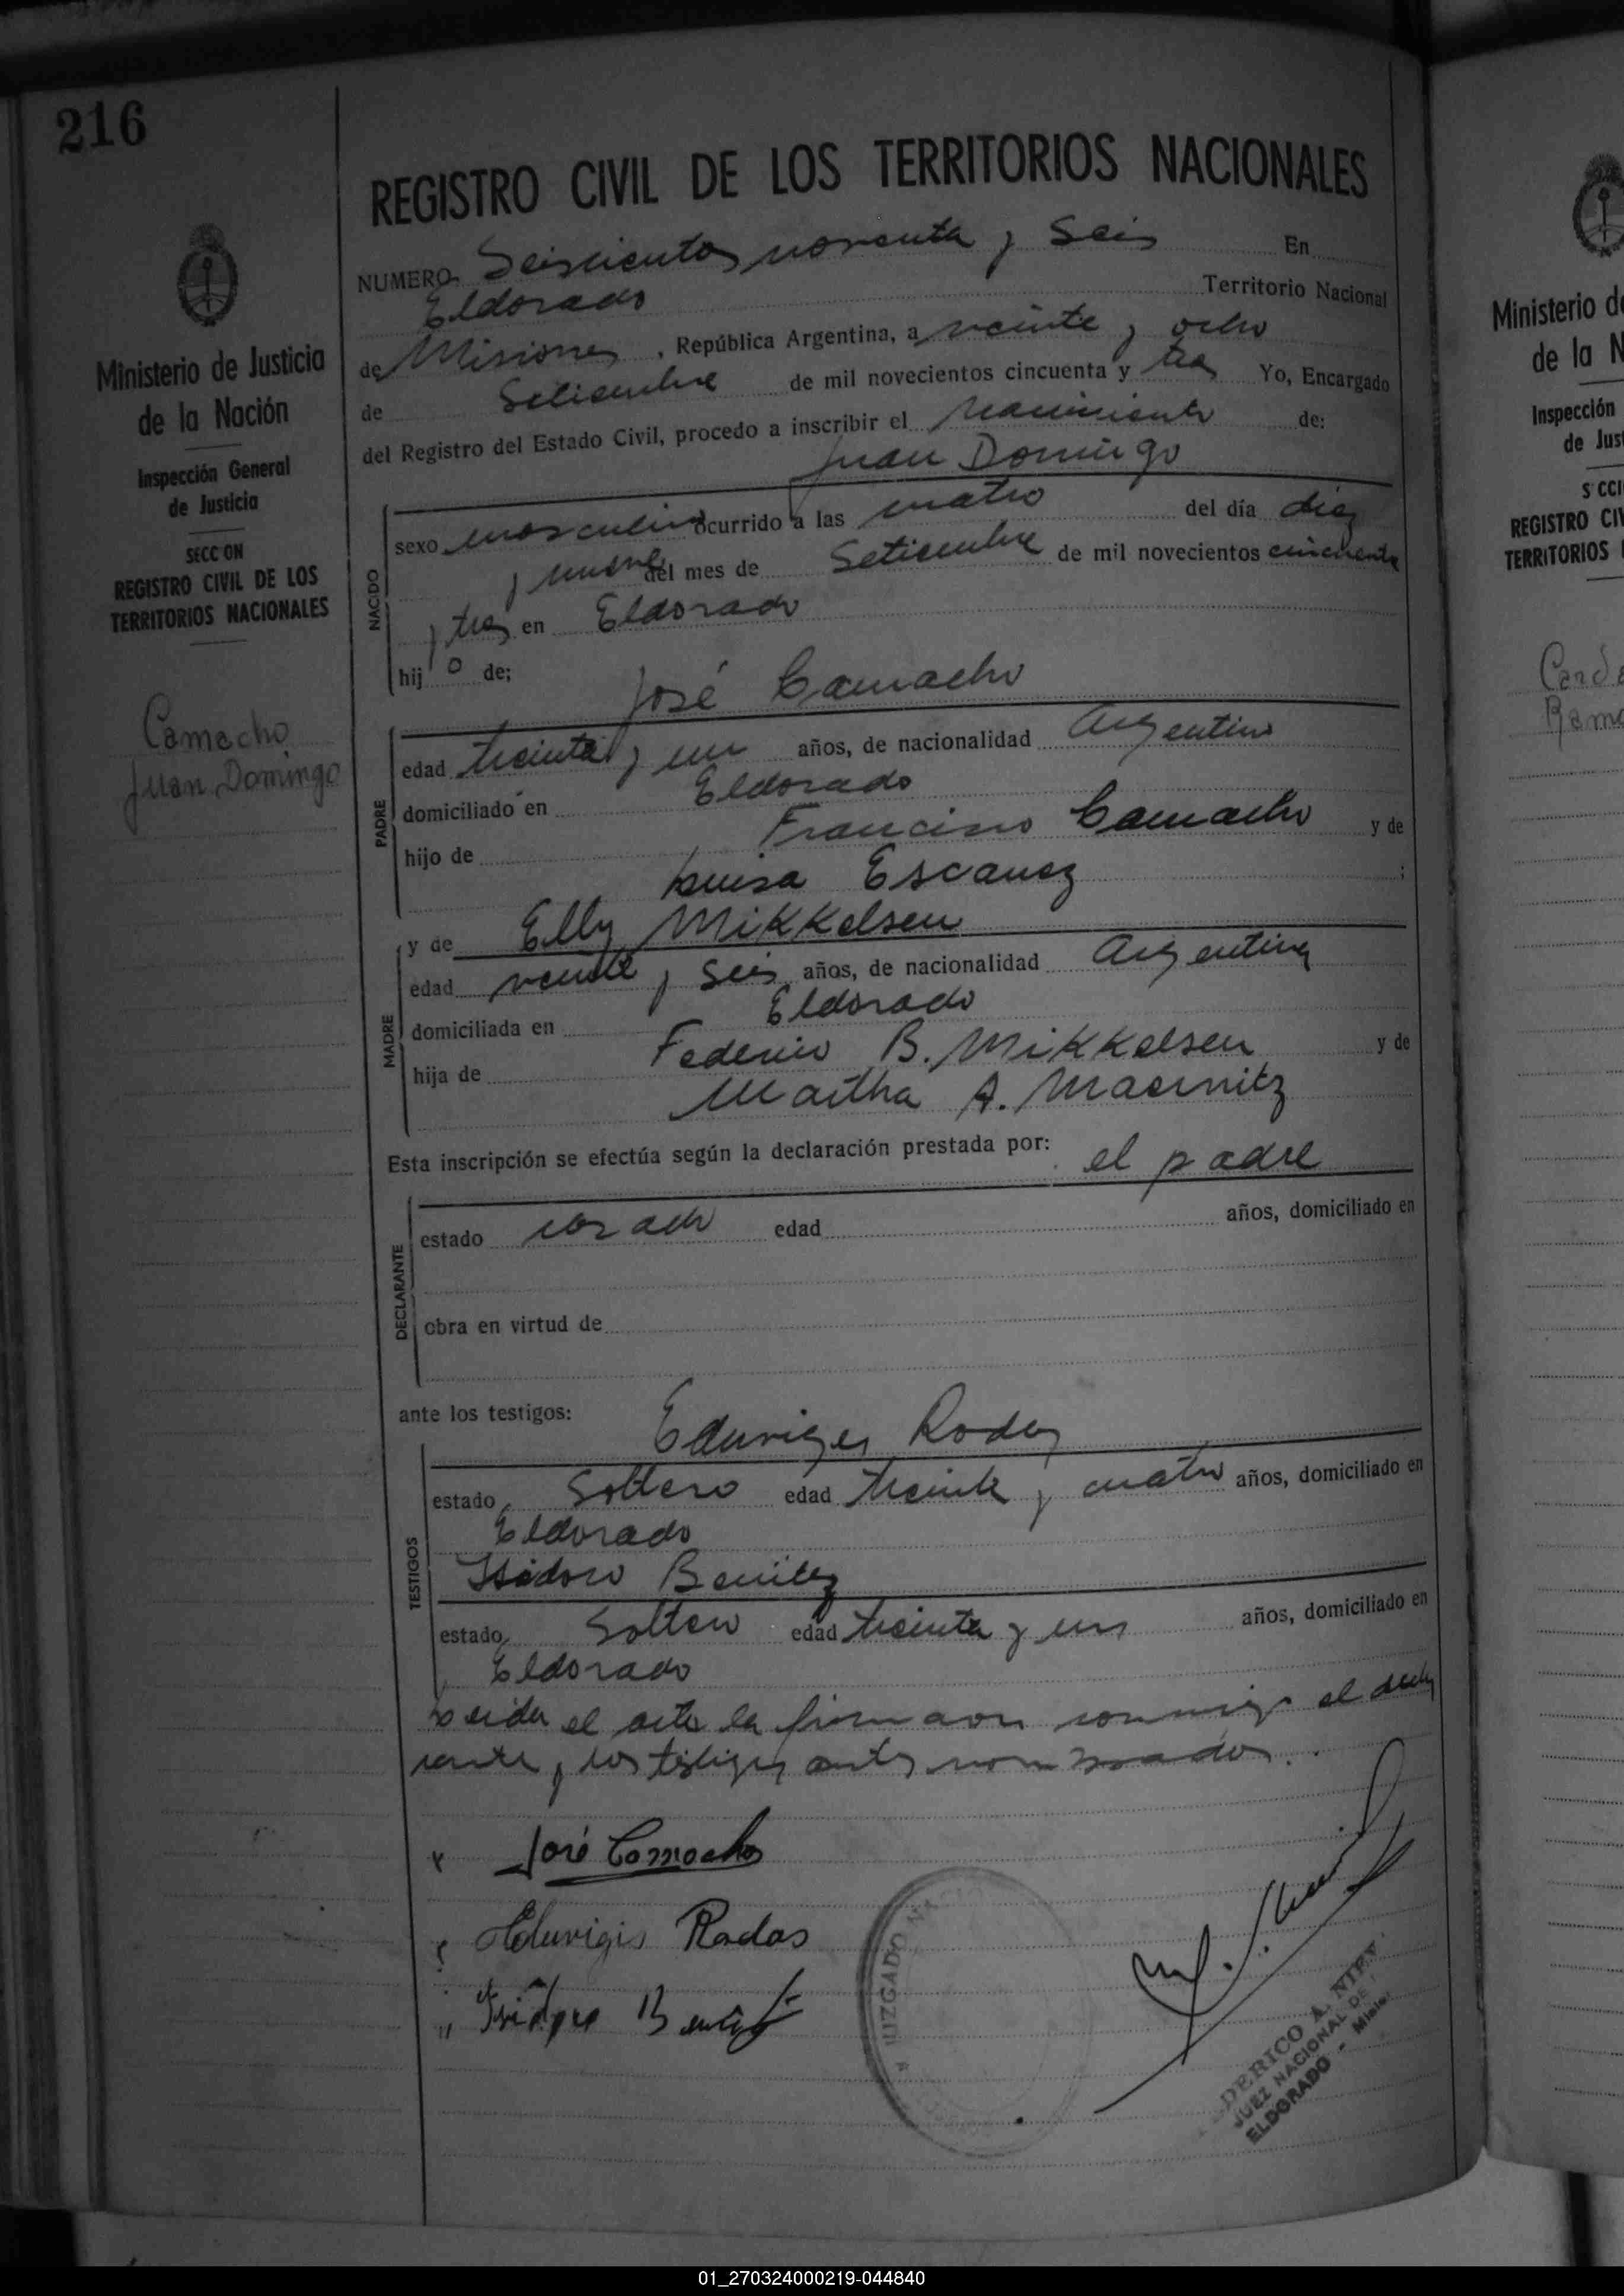 216
REGISTRO CIVIL DE LOS TERRITORIOS NACIONALES
Ministerio de Justicia
de la Nación
Inspección General
de Justicia
SECCION
REGISTRO CIVIL DE LOS
TERRITORIOS NACIONALES
Camacho
Juan Domingo
NUMERO Seiscientos noventa y Seis En
Eldorado Territorio Nacional
de Misiones, República Argentina, a veinte y ocho
de Setiembre de mil novecientos cincuenta y tres Yo, Encargado
del Registro del Estado Civil, procedo a inscribir el nacimiento de:
Juan Domingo
NACIDO
sexo masculino ocurrido a las cuatro del día diez
y nueve del mes de Setiembre de mil novecientos cincuenta
y tres en Eldorado
hijo de;
José Camacho
PADRE
edad treinta y un años, de nacionalidad Argentino
domiciliado en Eldorado
hijo de Francisco Camacho y de
Luisa Escanez ;
y de Elly Mikkelsen
MADRE
edad veinte y seis años, de nacionalidad Argentina
domiciliada en Eldorado
hija de Federico B. Mikkelsen y de
Martha A.
Esta inscripción se efectúa según la declaración prestada por: el padre
DECLARANTE
estado casado edad años, domiciliado en
obra en virtud de
ante los testigos:
Eduviges Rodas
TESTIGOS
estado Soltero edad treinta y cuatro años, domiciliado en
Eldorado
Isidoro Benitez
estado Soltero edad treinta y un años, domiciliado en
Eldorado
Leida el acta la firmaron conmigo el decla
rante y los testigos antes nombrados.
José Camacho
Eduvigis Rodas
Isidoro Benitez
JUZGADO NACIO
DERICO A.
JUEZ NACIONAL DE
ELDORADO - Misio
Ministerio de
de la N
Inspección
de Jus
S CCI
REGISTRO CIV
TERRITORIOS
01_270324000219-044840